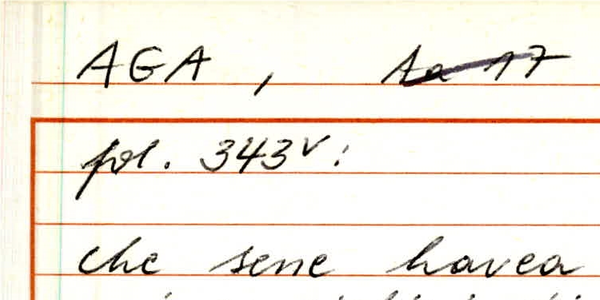 AGA, Aa 17
fol. 343v:
che sene havea